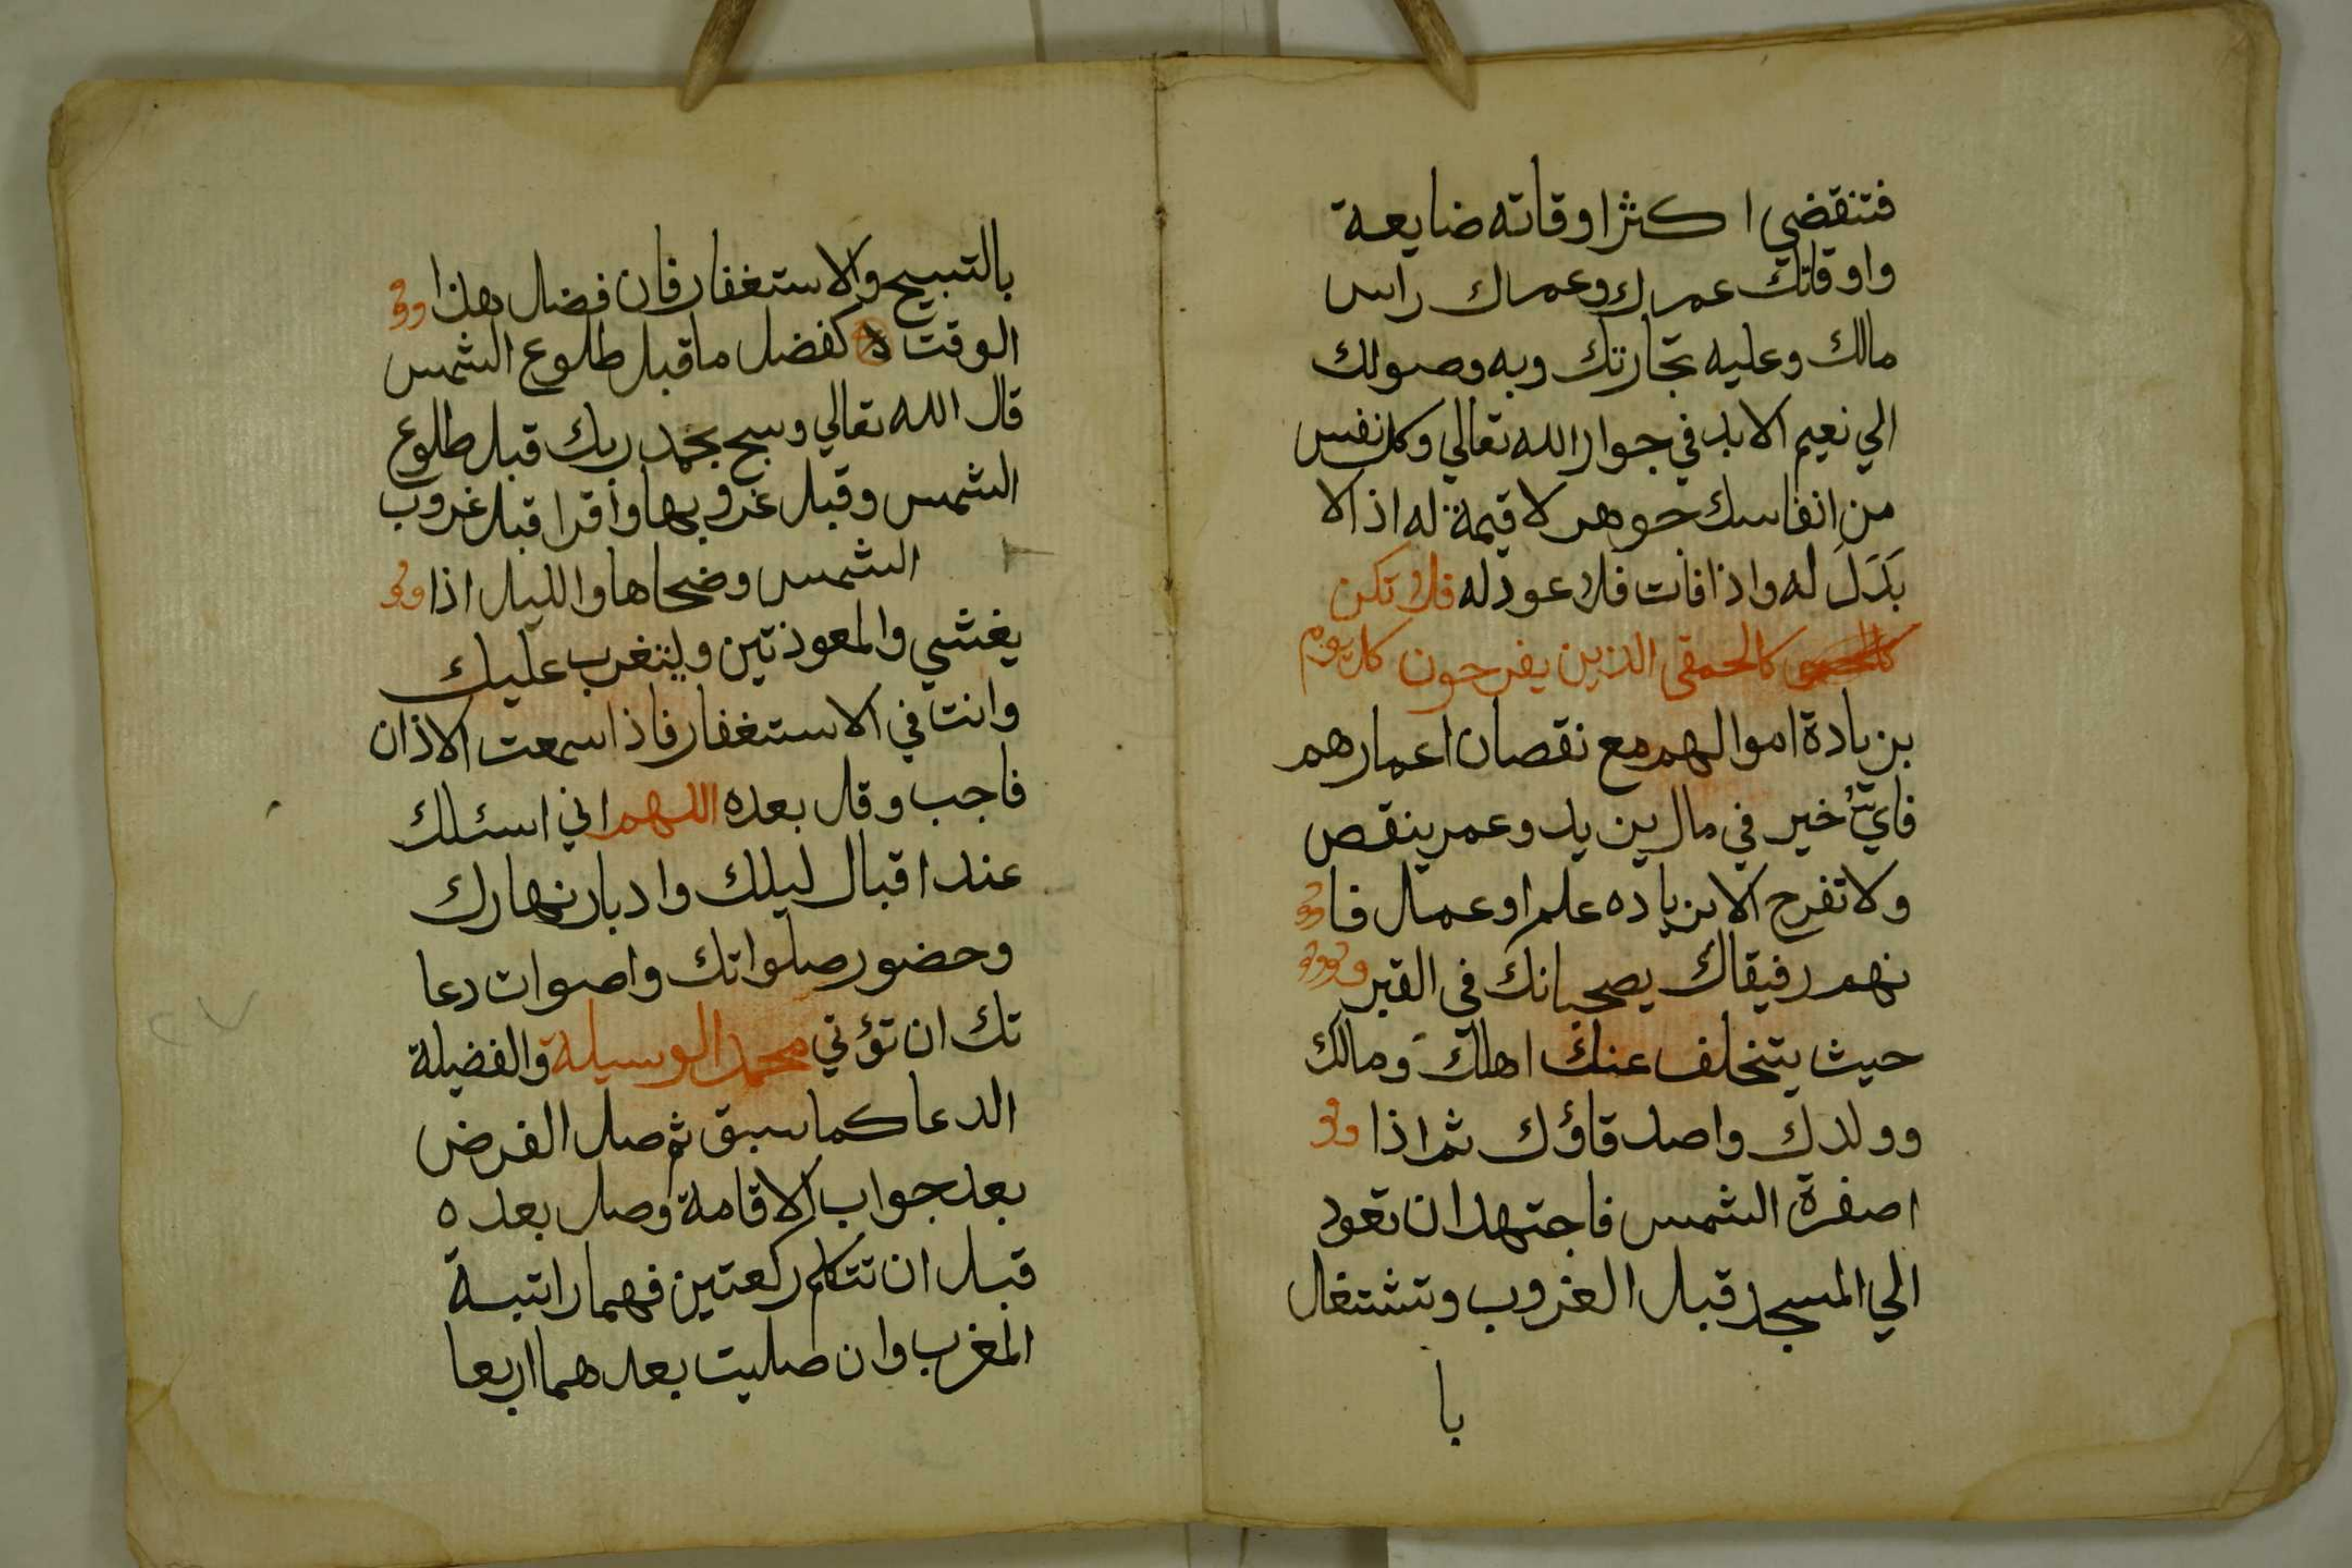 فتنقضي اكثر اوقاته ضايعة
واوقاتك عمرك وعمرك راس
مالك وعليه تجارتك وبه وصولك
الي نعيم الابد في جوار الله تعالي وكل نفس
من انفاسك جوهر لا قيمة له اذ لا
بَدَلَ له واذا فات فلا عود له فلا تكن
كالحمقى الذين يفرحون كل يوم
بزيادة اموالهم مع نقصان اعمارهم
فايُّ خير في مال يزيد وعمر ينقص
ولا تفرح الا بزياده علم او عمل فا
نهم رفيقاك يصحبانك في القبر
حيث يتخلف عنك اهلك ومالك
وولدك واصدقاؤك ثم اذا
اصفرة الشمس فاجتهد ان تعود
الي المسجد قبل الغروب وتشتغل
با
بالتسبيح والاستغفار فان فضل هذا
الوقت كفضل ما قبل طلوع الشمس
قال الله تعالي وسبح بحمد ربك قبل طلوع
الشمس وقبل غروبها واقرا قبل غروب
الشمس وضحاها والليل اذا
يغشي والمعوذتين ولتغرب عليك
وانت في الاستغفار فاذا سمعت الاذان
فاجب وقل بعده اللهم اني اسئلك
عند اقبال ليلك وادبار نهارك
وحضور صلواتك واصوات دعا
تك ان تؤتي محمد الوسيلة والفضيلة
الدعا كما سبق ثم صل الفرض
بعد جواب الاقامة وصل بعده
قبل ان تتكلم ركعتين فهما راتبة
المغرب وان صليت بعدهما اربعا